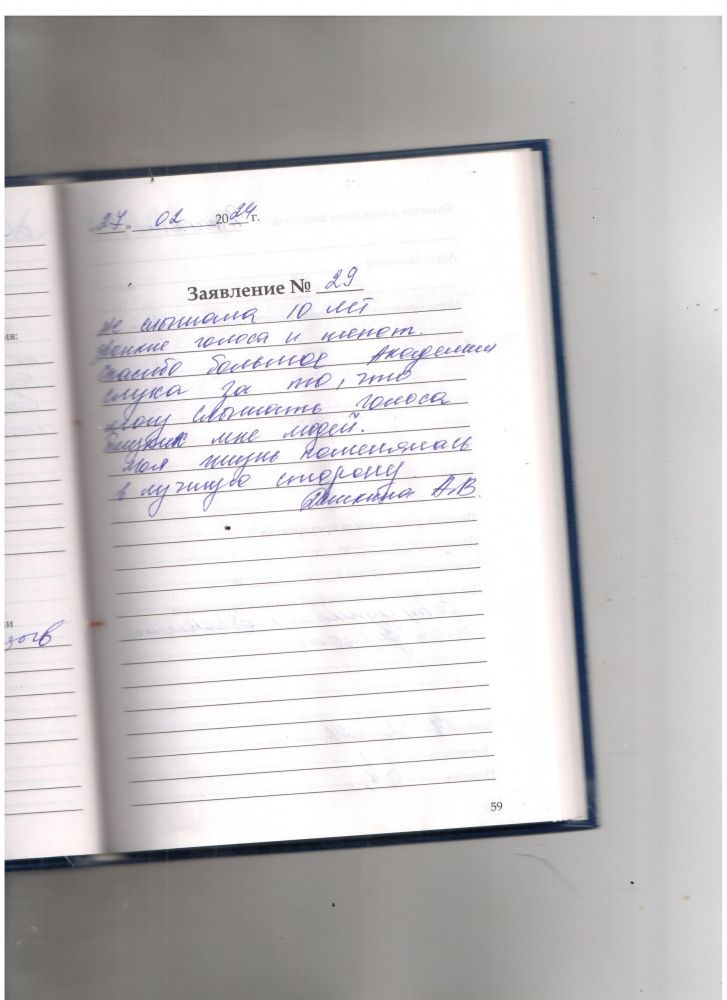 27. 02 2024 г.
Заявление № 29
Не слышала 10 лет
звонкие голоса и шепот.
Спасибо большое Академии
слуха за то, что
могу слышать голоса
близких мне людей.
Моя жизнь поменялась
в лучшую сторону
А.В.
ия:
ии
59